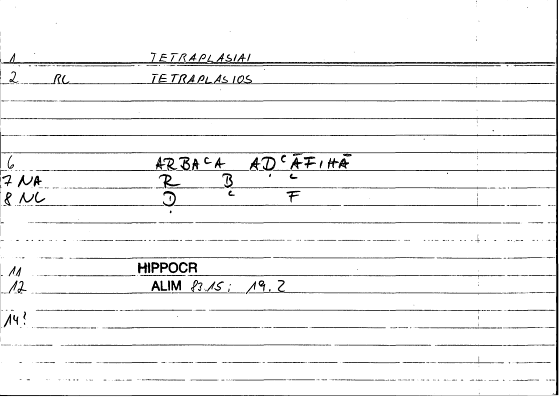 1 TETRAPLASIAI
2 RC TETRAPLASIOS
6 ARBACA AD C ĀFIHĀ
7 NA R B C
8 NC D C F
11 HIPPOCR
12 ALIM 83.15; 19.2
14!